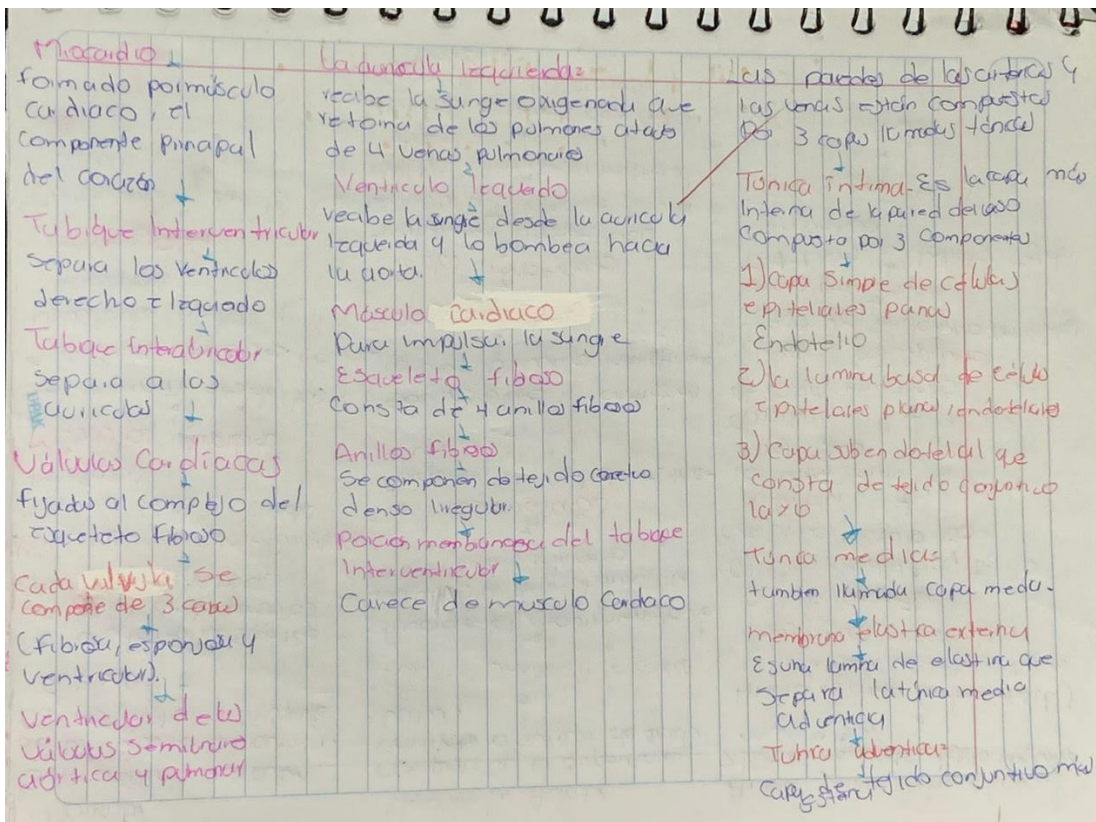 Miocardio
formado por músculo
cardiaco, el
componente principal
del corazón
Tabique Interventricular
separa los ventriculos
derecho e Izquierdo
Tabique Interauricular
separa a las
auriculas
Válvulas Cardiacas
fijadas al complejo del
esqueleto fibroso
Cada valvula se
compone de 3 capas
(fibrosa, esponjosa y
ventricular).
ventricular de las
válvulas semilunares
aórtica y pulmonar
La auricula Izquierda:
recibe la sangre oxigenada que
retorna de los pulmones
de 4 venas pulmonares
Ventriculo Izquierdo
recibe la sangre desde la auricula
Izquierda y lo bombea hacia
la aorta.
Músculo Cardiaco
Para impulsar la sangre
Esqueleto fibroso
Consta de 4 anillos fibrosos
Anillos fibrosos
Se componen de tejido conectivo
denso irregular.
Porción membranosa del tabique
Interventricular
Carece de musculo Cardiaco
Las paredes de las arterias y
las venas están compuestas
por 3 capas llamadas túnicas
Túnica íntima. Es la capa más
Interna de la pared del vaso
compuesta por 3 componentes
1) Capa simple de células
epiteliales planas
Endotelio
2) la lamina basal de células
epiteliales planas, endoteliales
3) Capa subendotelial que
consta de tejido conjuntivo
laxo
Túnica media:
tambien llamada capa media.
membrana elastica externa
Es una lamina de elastina que
separa la túnica media
adventicia
Tunica adventicia:
Capa de tejido conjuntivo más
externa